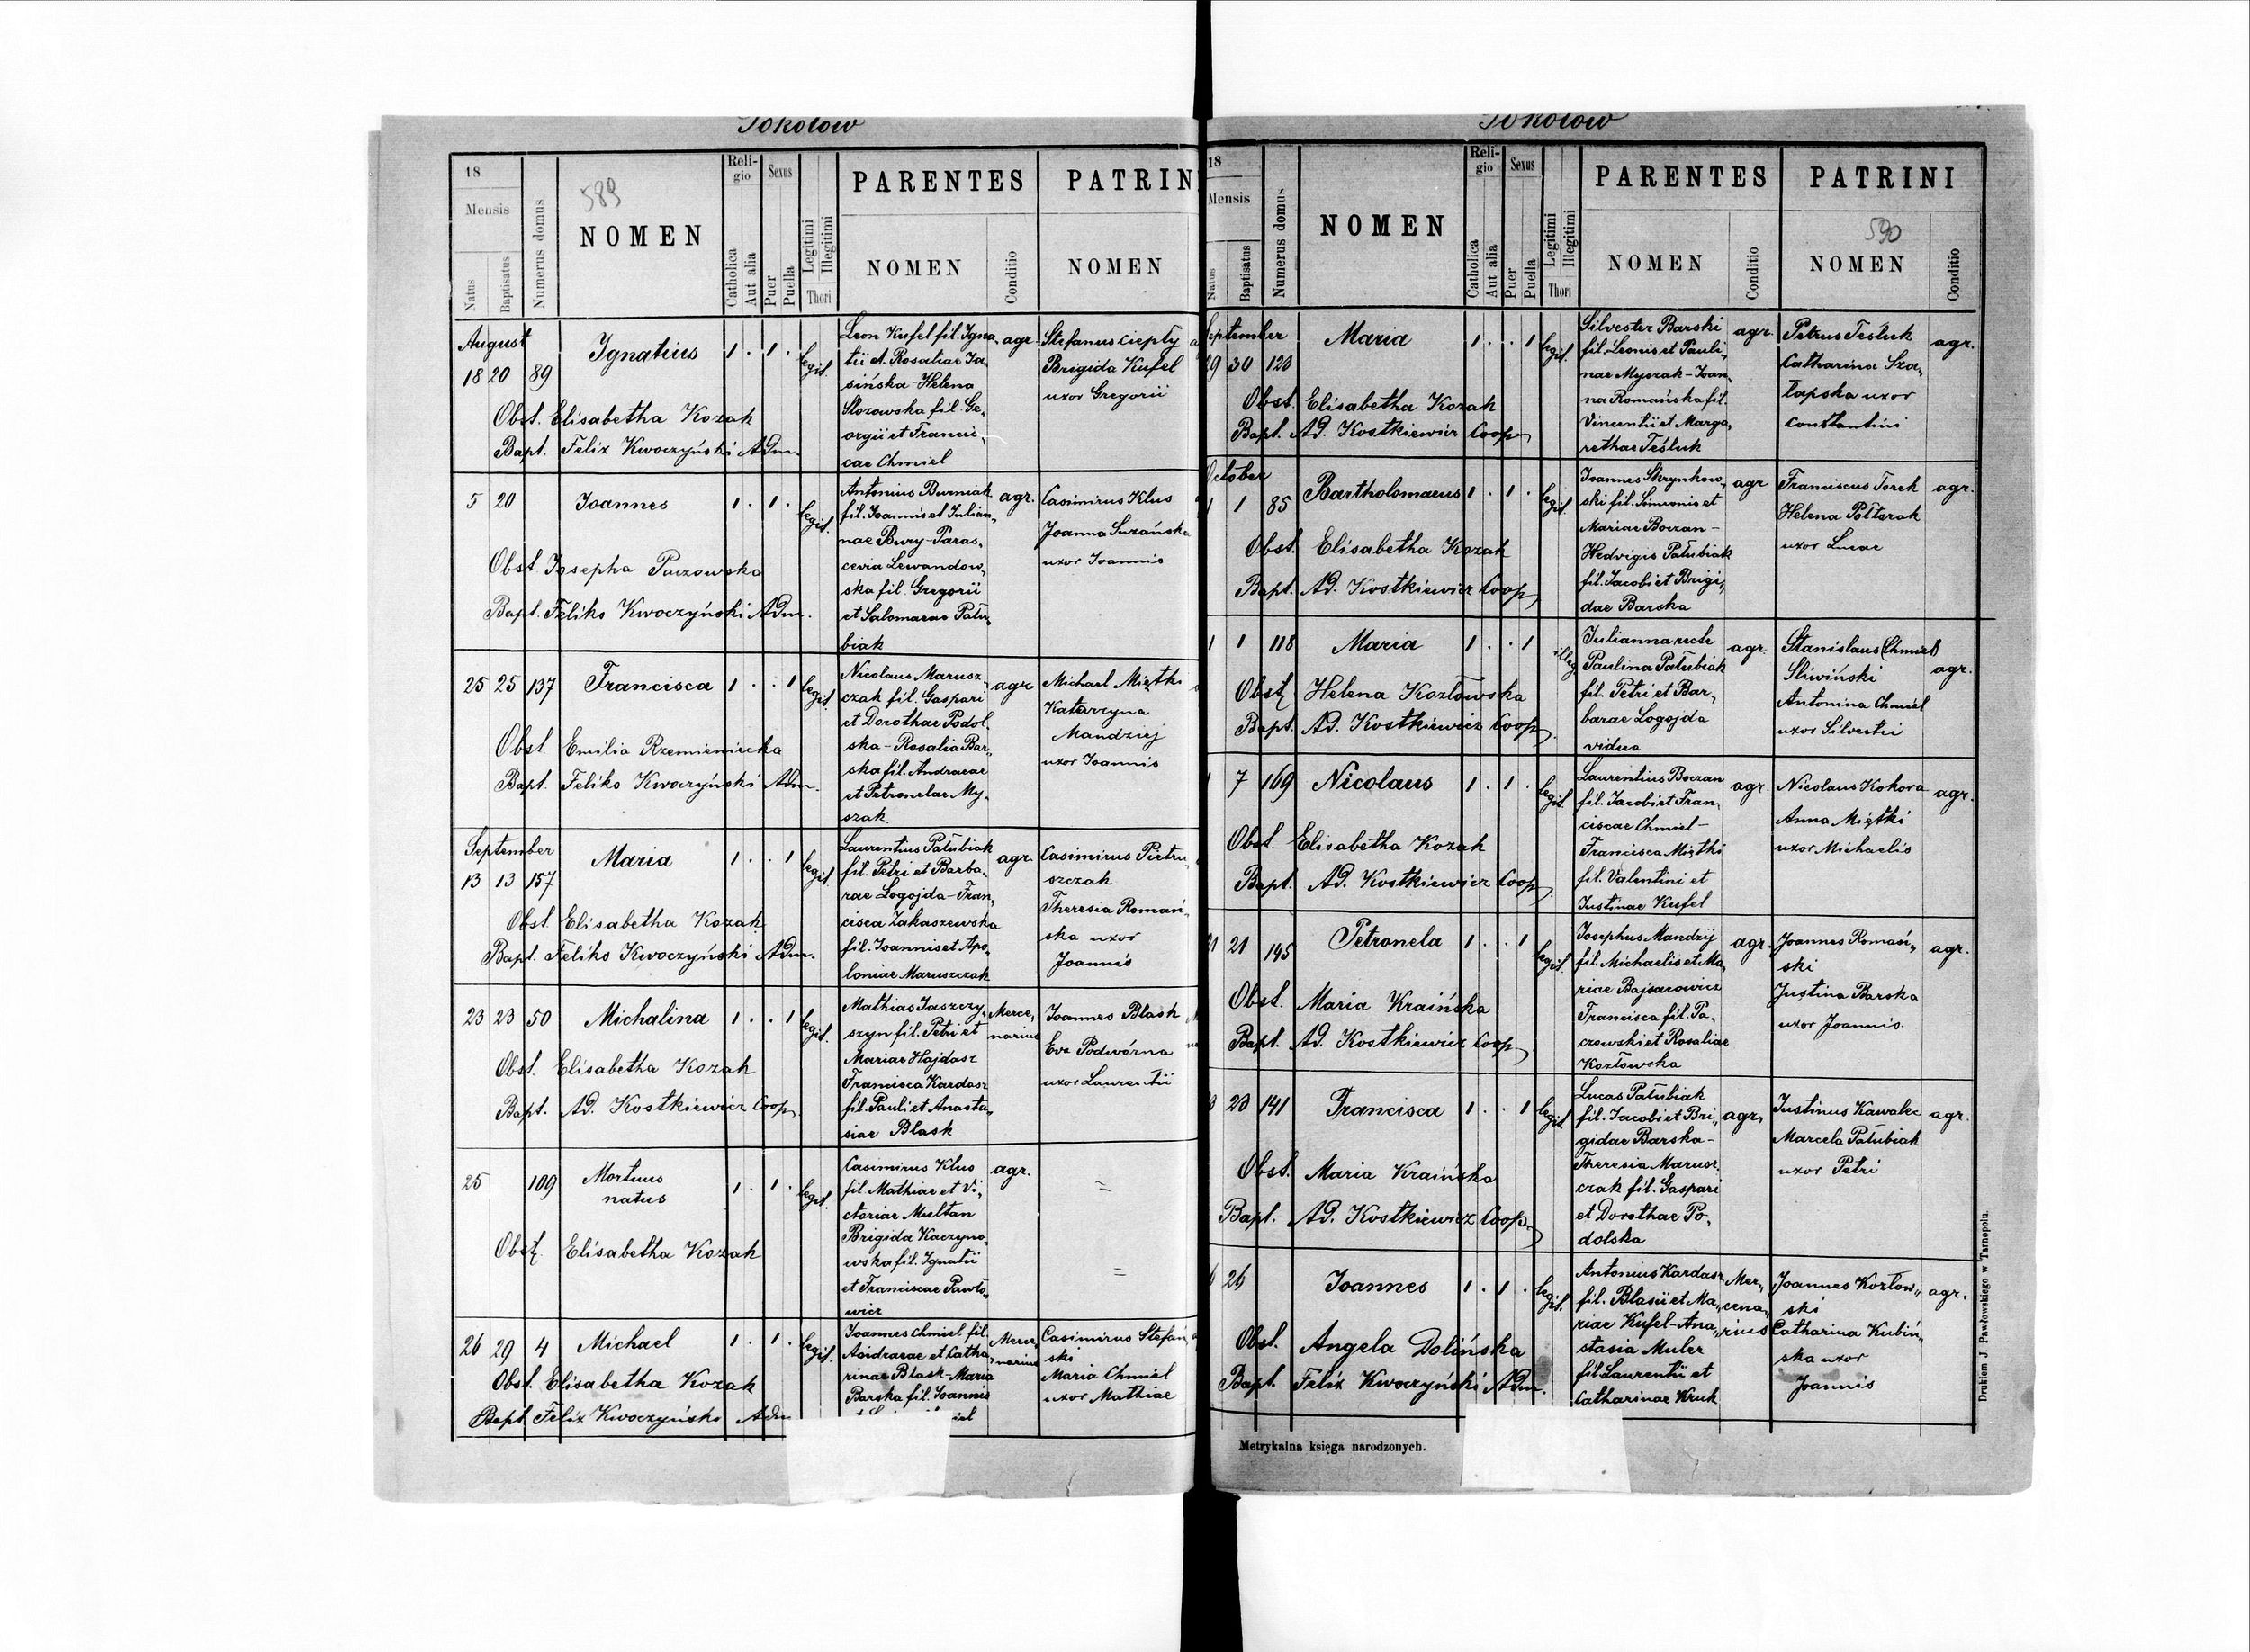 Sokołów
18
Mensis
Natus
Baptisatus
Numerus domus
589
NOMEN
Religio
Catholica
Aut alia
Sexus
Puer
Puella
Legitimi
Illegitimi
Thori
PARENTES
NOMEN
Conditio
PATRIN
NOMEN
August
18 20 89 Ignatius 1 . 1 . legit.
Obst. Elisabetha Kozak
Bapt. Felix Kwoczyński Adm.
Leon Kufel fil. Igna-
tii et Rosaliae Ja-
sińska - Helena
Słozowska fil. Ge-
orgii et Francis-
cae Chmiel
agr.
Stefanus Ciepły
Brigida Kufel
uxor Gregorii
5 20 Joannes 1 . 1 . legit.
Obst. Josepha Paczowska
Bapt. Feliks Kwoczyński Adm.
Antonius Burniak
fil. Joannis et Julian-
nae Bury - Paras-
cevia Lewandow-
ska fil. Gregorii
et Salomeae Pału-
biak
agr.
Casimirus Klus
Joanna Suzańska
uxor Joannis
25 25 137 Francisca 1 . . 1 legit.
Obst Emilia Rzemieniecka
Bapt. Feliks Kwoczyński Adm.
Nicolaus Marusz-
czak fil. Gaspari
et Dorotheae Podol-
ska - Rosalia Bar-
ska fil. Andraeae
et Petronelae My-
szak
agr.
Michael Miętki
Katarzyna
Mandziej
uxor Joannis
September
13 13 157 Maria 1 . . 1 legit.
Obst. Elisabetha Kozak
Bapt. Feliks Kwoczyński Adm.
Laurentius Pałubiak
fil. Petri et Barba-
rae Logojda - Fran-
cisca Zakaszewska
fil. Joannis et Apo-
loniae Maruszczak
agr.
Casimirus Pietru-
szczak
Theresia Romań-
ska uxor
Joannis
23 23 50 Michalina 1 . . 1 legit.
Obst. Elisabetha Kozak
Bapt. Ad. Kostkiewicz Coop.
Mathias Jaszczy-
szyn fil. Petri et
Mariae Hajdasz
Francisca Kardasz
fil. Pauli et Anasta-
siae Blask
Merce-
narius
Joannes Blask
Eva Podwórna
uxor Laurentii
25 109 Mortuus
natus 1 . 1 . legit.
Obst. Elisabetha Kozak
Casimirus Klus
fil. Mathiae et Vi-
ctoriae Multan
Brigida Kaczyno-
wska fil. Ignatii
et Franciscae Pawło-
wicz
agr.
=
=
26 29 4 Michael 1 . 1 . legit.
Obst. Elisabetha Kozak
Bapt. Felix Kwoczyński Adm
Joannes Chmiel fil.
Andraeae et Catha-
rinae Blask - Maria
Barska fil. Joannis
Merce-
narius
Casimirus Stefań-
ski
Maria Chmiel
uxor Mathiae
Sokołów
18
Mensis
Natus
Baptisatus
Numerus domus
NOMEN
Religio
Catholica
Aut alia
Sexus
Puer
Puella
Legitimi
Illegitimi
Thori
PARENTES
NOMEN
Conditio
PATRINI
590
NOMEN
Conditio
September
29 30 123 Maria 1 . . 1 legit.
Obst. Elisabetha Kozak
Bapt. Ad. Kostkiewicz Coop
Silvester Barski
fil. Leonis et Pauli-
nae Myszak - Joan-
na Romańska fil.
Vincentii et Marga-
rethae Teśluk
agr.
Petrus Teśluk
Catharina Sza-
łapska uxor
Constantini
agr.
October
1 1 85 Bartholomaeus 1 . 1 . legit.
Obst. Elisabetha Kozak
Bapt. Ad. Kostkiewicz Coop
Joannes Skrynkow-
ski fil. Simeonis et
Mariae Boczan -
Hedvigis Pałubiak
fil. Jacobi et Brigi-
dae Barska
agr
Franciscus Torek
Helena Półtorak
uxor Lucae
agr.
1 1 118 Maria 1 . . 1 illeg.
Obst. Helena Kozłowska
Bapt. Ad. Kostkiewicz Coop
Julianna recte
Paulina Pałubiak
fil. Petri et Bar-
barae Logojda
vidua
agr.
Stanislaus (Chmiel)
Sliwiński
Antonina Chmiel
uxor Silvestri
agr.
7 169 Nicolaus 1 . 1 . legit.
Obst. Elisabetha Kozak
Bapt. Ad. Kostkiewicz Coop
Laurentius Boczan
fil. Jacobi et Fran-
ciscae Chmiel -
Francisca Miętki
fil. Valentini et
Justinae Kufel
agr.
Nicolaus Kokora
Anna Miętki
uxor Michaelis
agr.
21 21 145 Petronela 1 . . 1 legit.
Obst. Maria Kraińska
Bapt. Ad. Kostkiewicz Coop
Josephus Mandzij
fil. Michaelis et Ma-
riae Bajsarowicz
Francisca fil. Pa-
czowski et Rosaliae
Kozłowska
agr.
Joannes Romań-
ski
Justina Barska
uxor Joannis.
agr.
23 141 Francisca 1 . . 1 legit.
Obst. Maria Kraińska
Bapt. Ad. Kostkiewicz Coop.
Lucas Pałubiak
fil. Jacobi et Bri-
gidae Barska -
Theresia Marusz-
czak fil. Gaspari
et Dorotheae Po-
dolska
agr.
Justinus Kawalec
Marcela Pałubiak
uxor Petri
agr.
26 Joannes 1 . 1 . legit.
Obst. Angela Dolińska
Bapt. Felix Kwoczyński Adm.
Antonius Kardasz
fil. Blasii et Ma-
riae Kufel - Ana-
stasia Muler
fil. Laurentii et
Catharinae Kruk
Mer-
cena-
rius
Joannes Kozłow-
ski
Catharina Kubiń-
ska uxor
Joannis
agr.
Metrykalna księga narodzonych.
Drukiem J. Pawłowskiego w Tarnopolu.